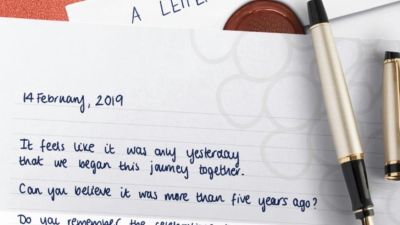 A LETTER
14 February, 2019
It feels like it was only yesterday
that we began this journey together.
Can you believe it was more than five years ago?
Do you remember the